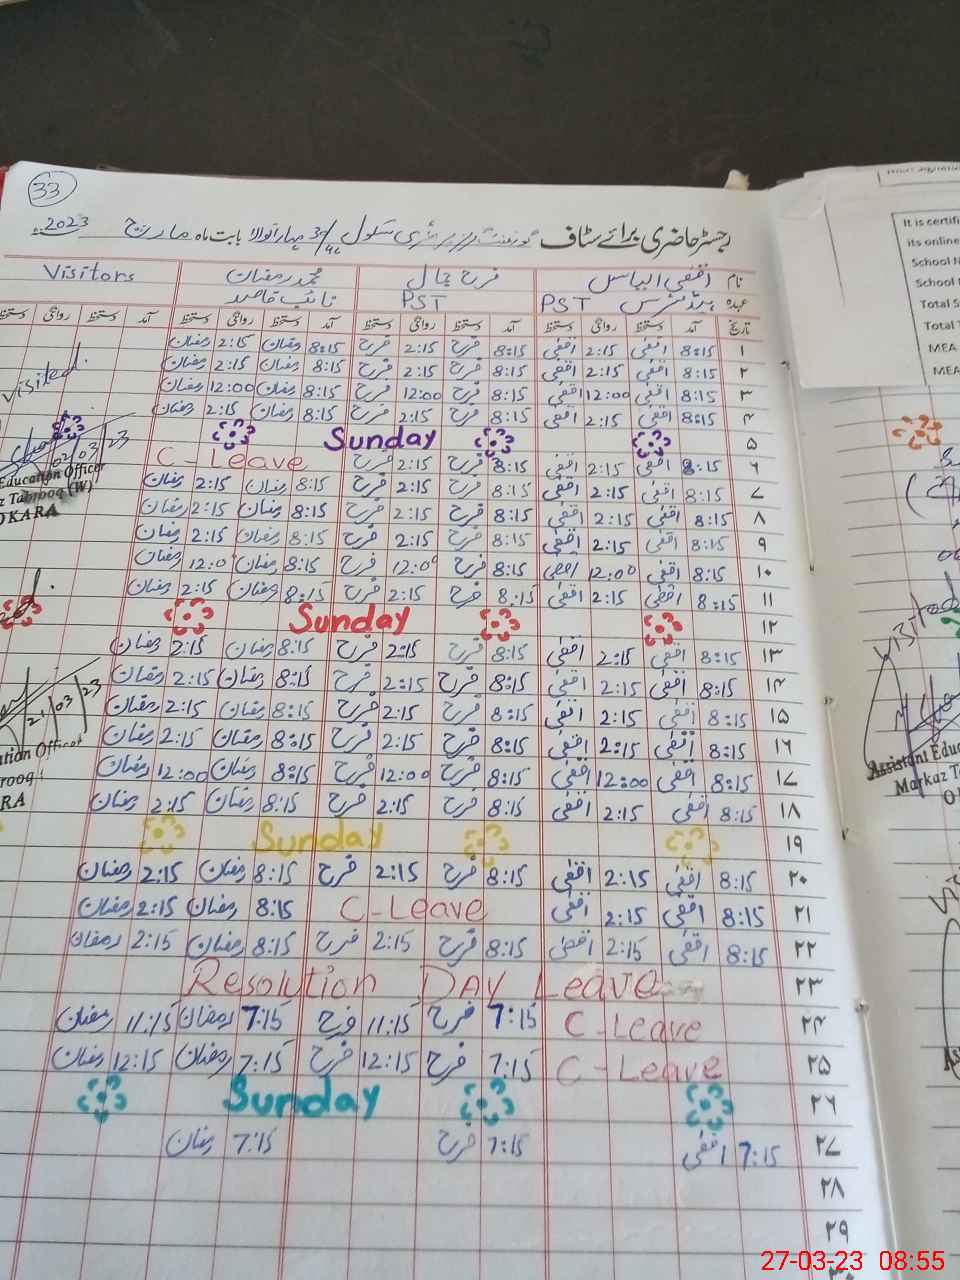 33
رجسٹر حاضری برائے سٹاف گورنمنٹ گرلز پرائمری سکول بابت ماہ مارچ 2023
نام اقصٰی الیاس فرح جمال محمد رمضان Visitors
عہدہ ہیڈ مسٹرس PST PST نائب قاصد
تاریخ آمد دستخط روانگی دستخط آمد دستخط روانگی دستخط آمد دستخط روانگی دستخط آمد دستخط روانگی دستخط
۱ 8:15 اقصٰی 2:15 اقصٰی 8:15 فرح 2:15 فرح 8:15 رمضان 2:15 رمضان
۲ 8:15 اقصٰی 2:15 اقصٰی 8:15 فرح 2:15 فرح 8:15 رمضان 2:15 رمضان
۳ 8:15 اقصٰی 12:00 اقصٰی 8:15 فرح 12:00 فرح 8:15 رمضان 12:00 رمضان
۴ 8:15 اقصٰی 2:15 اقصٰی 8:15 فرح 2:15 فرح 8:15 رمضان 2:15 رمضان
۵ Sunday
۶ 8:15 اقصٰی 2:15 اقصٰی 8:15 فرح 2:15 فرح C-Leave
۷ 8:15 اقصٰی 2:15 اقصٰی 8:15 فرح 2:15 فرح 8:15 رمضان 2:15 رمضان
۸ 8:15 اقصٰی 2:15 اقصٰی 8:15 فرح 2:15 فرح 8:15 رمضان 2:15 رمضان
۹ 8:15 اقصٰی 2:15 اقصٰی 8:15 فرح 2:15 فرح 8:15 رمضان 2:15 رمضان
۱۰ 8:15 اقصٰی 12:00 اقصٰی 8:15 فرح 12:00 فرح 8:15 رمضان 12:0 رمضان
۱۱ 8:15 اقصٰی 2:15 اقصٰی 8:15 فرح 2:15 فرح 8:15 رمضان 2:15 رمضان
۱۲ Sunday
۱۳ 8:15 اقصٰی 2:15 اقصٰی 8:15 فرح 2:15 فرح 8:15 رمضان 2:15 رمضان
۱۴ 8:15 اقصٰی 2:15 اقصٰی 8:15 فرح 2:15 فرح 8:15 رمضان 2:15 رمضان
۱۵ 8:15 اقصٰی 2:15 اقصٰی 8:15 فرح 2:15 فرح 8:15 رمضان 2:15 رمضان
۱۶ 8:15 اقصٰی 2:15 اقصٰی 8:15 فرح 2:15 فرح 8:15 رمضان 2:15 رمضان
۱۷ 8:15 اقصٰی 12:00 اقصٰی 8:15 فرح 12:00 فرح 8:15 رمضان 12:00 رمضان
۱۸ 8:15 اقصٰی 2:15 اقصٰی 8:15 فرح 2:15 فرح 8:15 رمضان 2:15 رمضان
۱۹ Sunday
۲۰ 8:15 اقصٰی 2:15 اقصٰی 8:15 فرح 2:15 فرح 8:15 رمضان 2:15 رمضان
۲۱ 8:15 اقصٰی 2:15 اقصٰی C-Leave 8:15 رمضان 2:15 رمضان
۲۲ 8:15 اقصٰی 2:15 اقصٰی 8:15 فرح 2:15 فرح 8:15 رمضان 2:15 رمضان
۲۳ Resolution DAY Leave
۲۴ C-Leave 7:15 فرح 11:15 فرح 7:15 رمضان 11:15 رمضان
۲۵ C-Leave 7:15 فرح 12:15 فرح 7:15 رمضان 12:15 رمضان
۲۶ Sunday
۲۷ 7:15 اقصٰی 7:15 فرح 7:15 رمضان
۲۸
۲۹
visited.
02/03/23
Education Officer
Tabrooq (W)
OKARA
21/03/23
It is certifi
its online
School N
School
Total S
Total
MEA
MEA
Assistant Educa
Markaz Ta
27-03-23 08:55